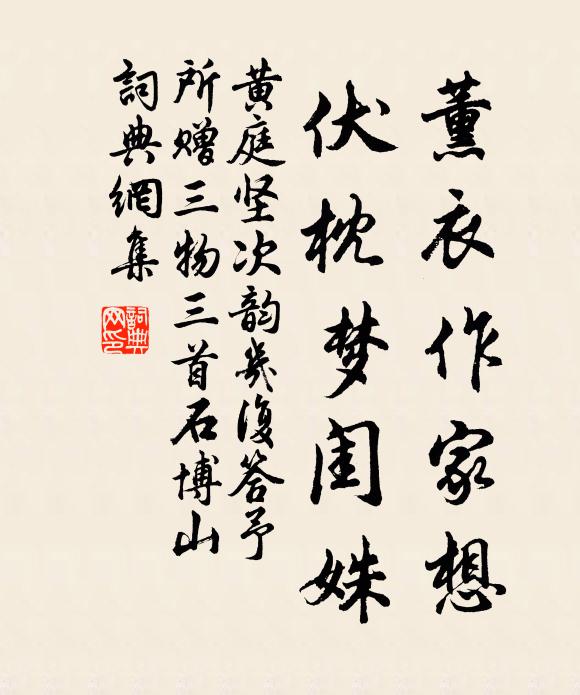 薰衣作家想
伏枕梦闺姝
黄庭坚次韵幾復答予
所赠三物三首石博山
詞典網集
詞典
网印